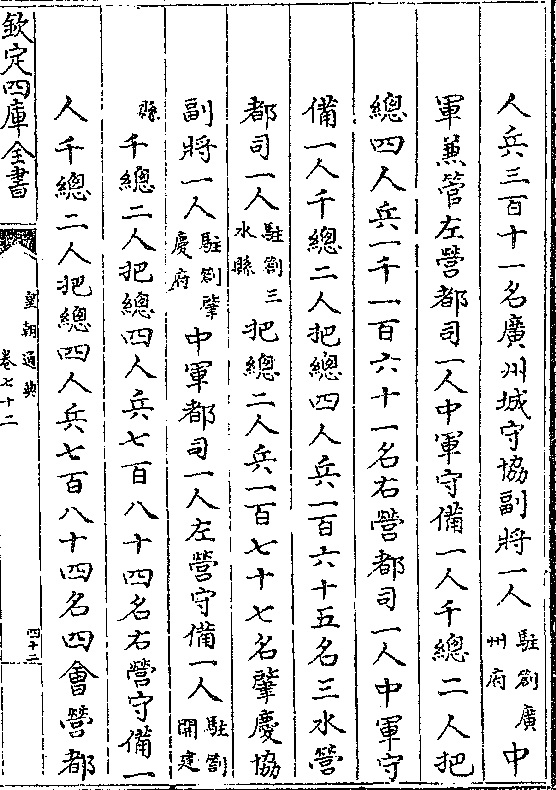 人兵三百十一名廣州城守協副將一人駐劄廣州府中
軍兼管左營都司一人中軍守備一人千總二人把
總四人兵一千一百六十一名右營都司一人中軍守
備一人千總二人把總四人兵一百六十五名三水營
都司一人駐劄三水縣把總二人兵一百七十七名肇慶協
副將一人駐劄肇慶府中軍都司一人左營守備一人駐劄開建
縣千總二人把總四人兵七百八十四名右營守備一
人千總二人把總四人兵七百八十四名四會營都
欽定四庫全書
皇朝通典
卷七十二
四十二